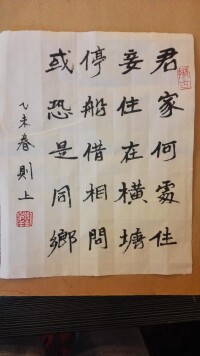 君家何處住
妾住在橫塘
停船借相問
或恐是同鄉
乙未春則上